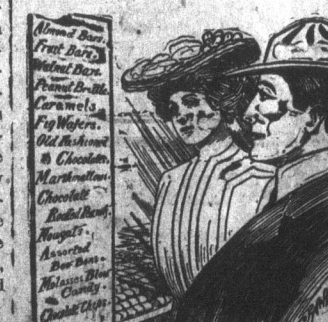 Almond Bars.
Fruit Bars.
Walnut Bars.
Peanut Brittle.
Caramels
Fig Wafers.
Old Fashioned
Chocolates.
Marshmallows.
Chocolate
Nougats.
Assorted
Bon Bons.
Molasses Blow
Candy.
Chocolate Chips.